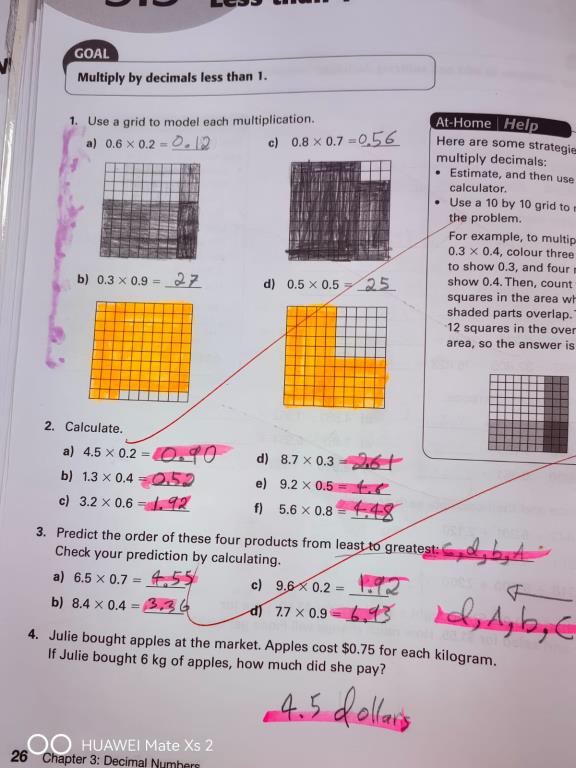 GOAL
Multiply by decimals less than 1.
1. Use a grid to model each multiplication.
a) 0.6 × 0.2 = 0.12
c) 0.8 × 0.7 = 0.56
b) 0.3 × 0.9 = 27
d) 0.5 × 0.5 = 25
At-Home Help
Here are some strategie
multiply decimals:
• Estimate, and then use
calculator.
• Use a 10 by 10 grid to
the problem.
For example, to multip
0.3 × 0.4, colour three
to show 0.3, and four
show 0.4. Then, count
squares in the area wh
shaded parts overlap.
12 squares in the over
area, so the answer is
2. Calculate.
a) 4.5 × 0.2 = 0.90
d) 8.7 × 0.3 = 2.61
b) 1.3 × 0.4 = 0.52
e) 9.2 × 0.5 = 4.6
c) 3.2 × 0.6 = 1.92
f) 5.6 × 0.8 = 4.48
3. Predict the order of these four products from least to greatest: c, d, b, A
Check your prediction by calculating.
a) 6.5 × 0.7 = 4.55
c) 9.6 × 0.2 = 1.92
b) 8.4 × 0.4 = 3.36
d) 7.7 × 0.9 = 6.93
d, A, b, C
4. Julie bought apples at the market. Apples cost $0.75 for each kilogram.
If Julie bought 6 kg of apples, how much did she pay?
4.5 dollars
HUAWEI Mate Xs 2
26 Chapter 3: Decimal Numbers